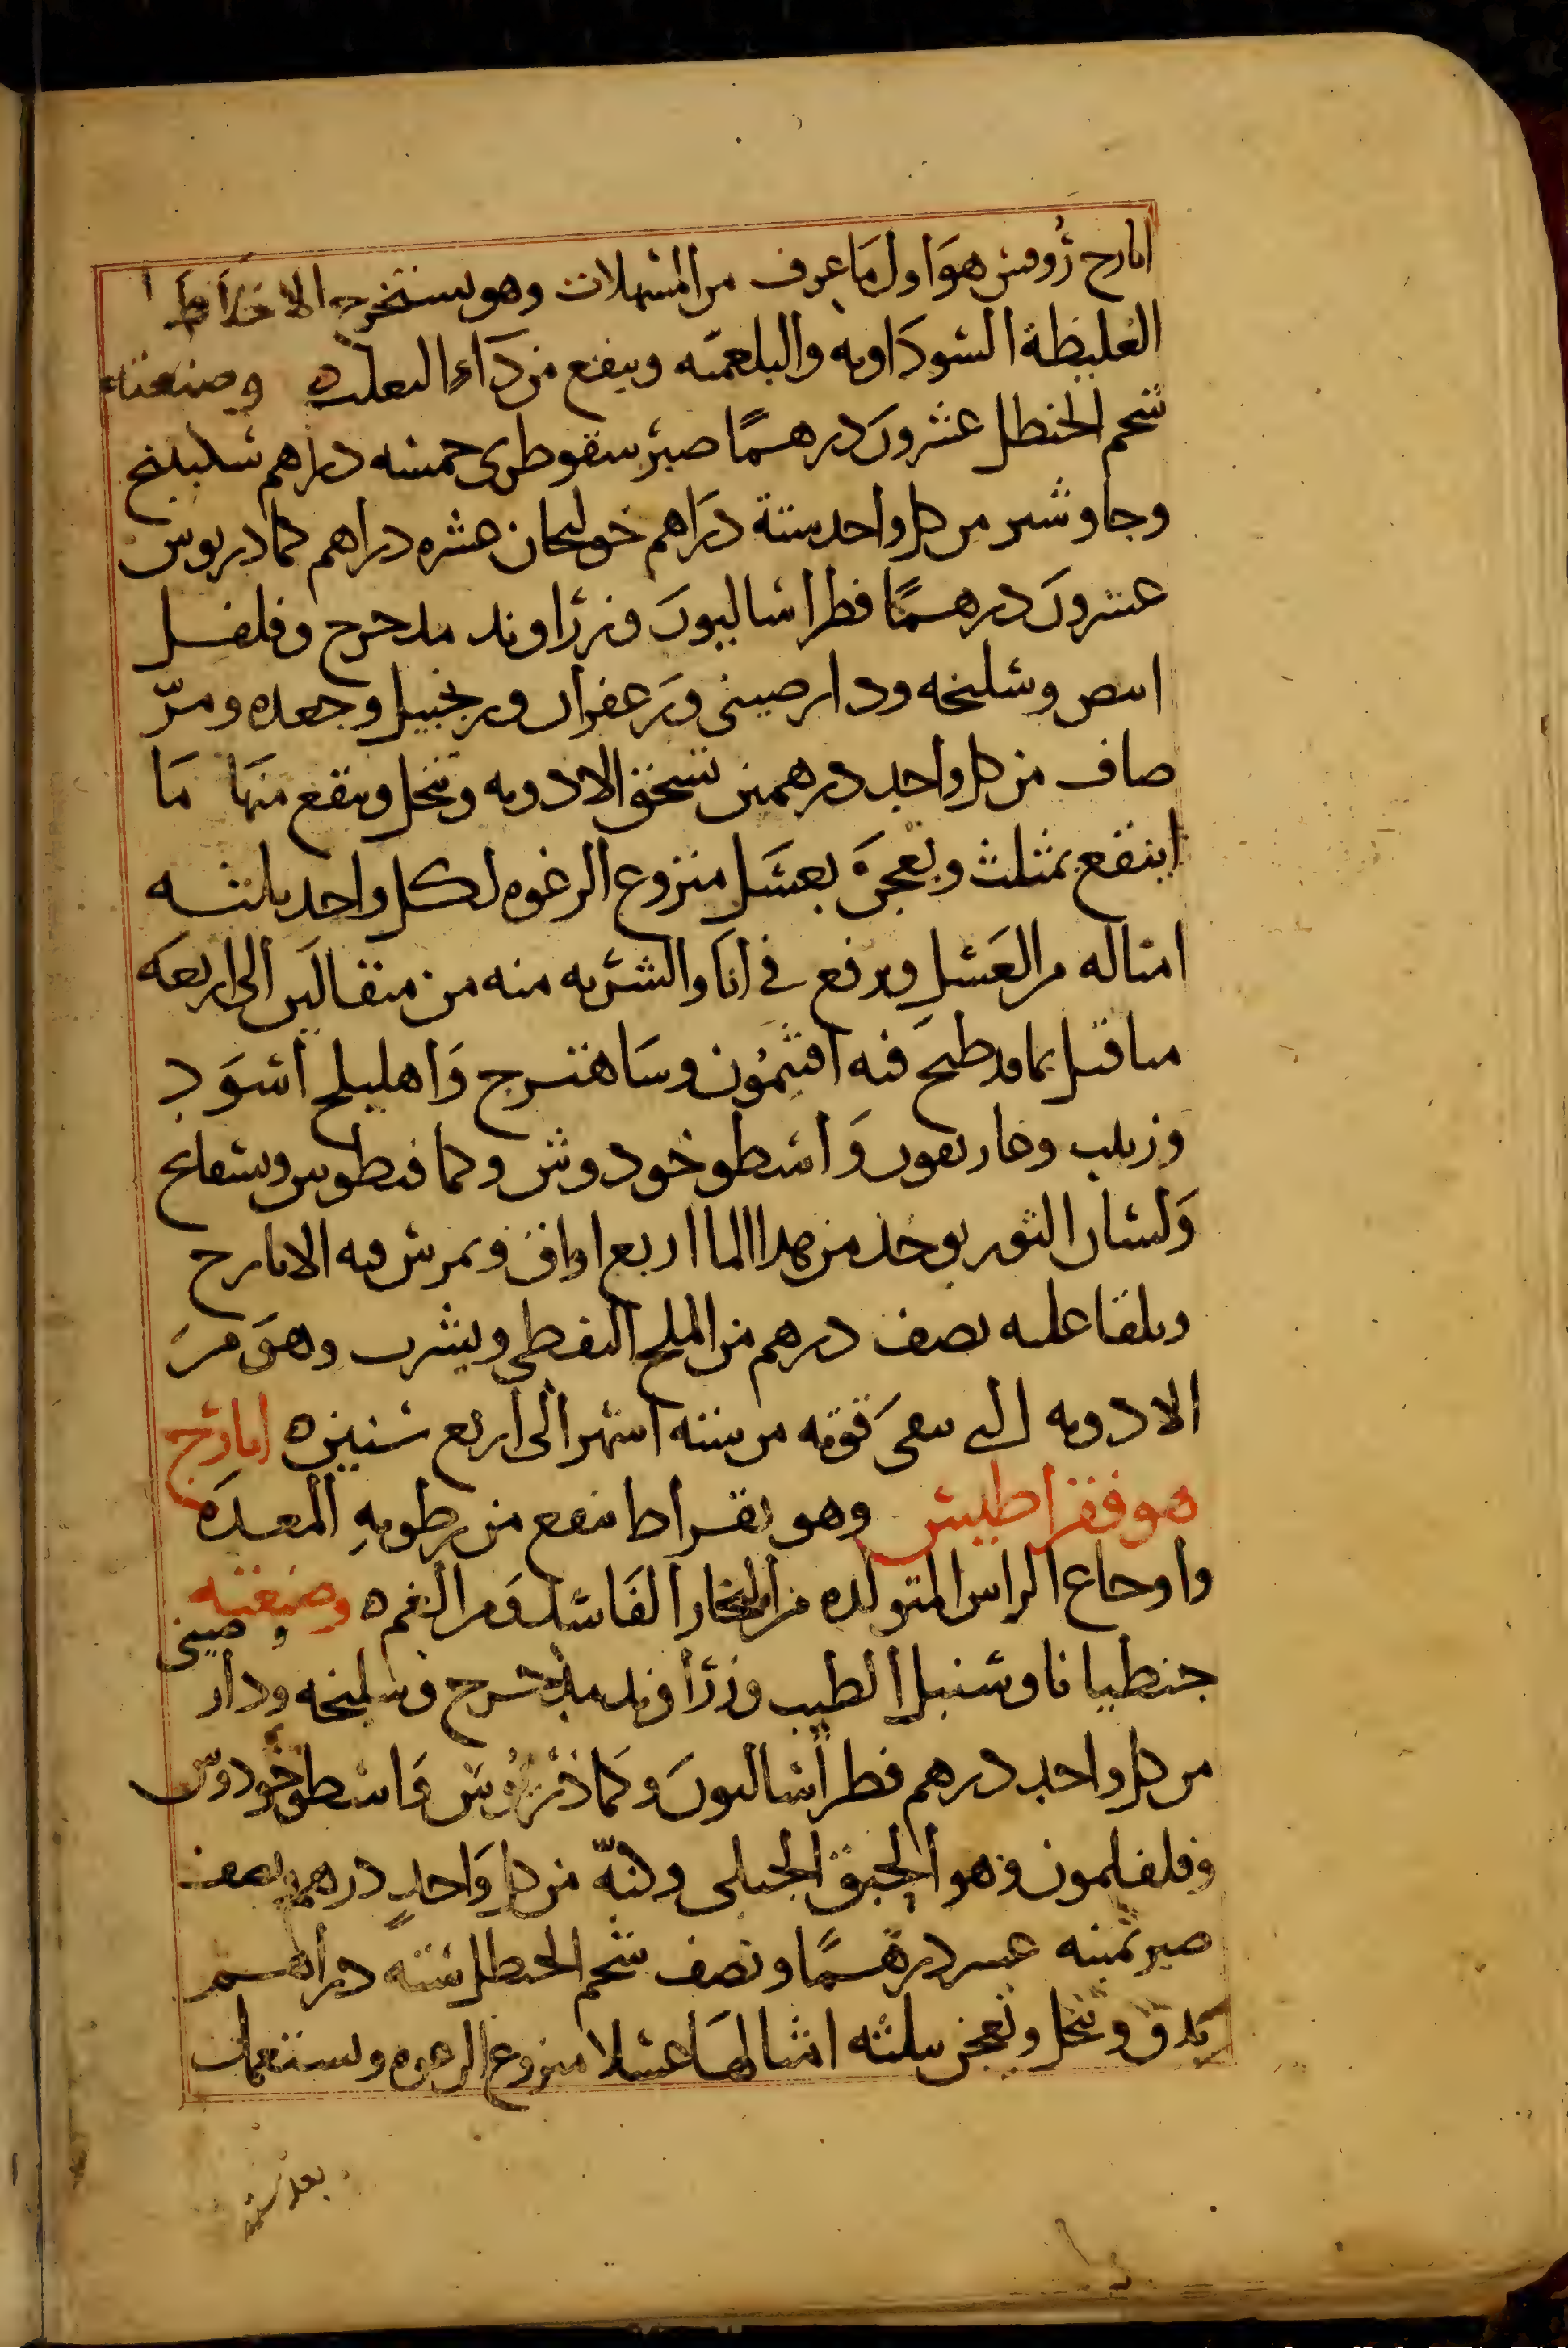 ايارج روفس هو اول ما عرف من المسهلات وهو يستخرج الاخلاط
الغليظة السوداويه والبلغميه وينفع من داء الثعلب وصنعته
شحم الحنظل عشرون درهمًا صبر سقوطرى خمسه دراهم سكبينج
وجاوشير من كل واحد ستة دراهم خولنجان عشره دراهم كمادريوس
عشرون درهمًا فطراساليون وزراوند مدحرج وفلفل
ابيض وسليخه ودارصينى وزعفران وزنجبيل وجعده ومرّ
صاف من كل واحد درهمين تسحق الادويه وتنخل وينقع منها ما
اينقع بمثلث ويعجن بعسل منزوع الرغوه لكل واحد ثلثه
امثاله من العسل ويرفع فى انا والشربه منه من مثقالين الى اربعه
مثاقيل بما قد طبخ فيه افتيمون وساهترج واهليلج اسود
وزبيب وغاريقون واسطوخودوس وكمافيطوس وبسفايج
ولسان الثور يوخذ من هدا الما اربع اواق ويمرس فيه الايارج
ويلقا عليه نصف درهم من الملح النفطى ويشرب وهو من
الادويه التى تبقى قوته من ستة اشهر الى اربع سنين ه ايارج
هوفقراطيس وهو بقراط ينفع من رطوبه المعده
واوجاع الراس المتولده من البخار الفاسد ومن البخره وصنعته
جنطيانا وسنبل الطيب وزراوند مدحرج وسليخه ودار وصينى
من كل واحد درهم فطراساليون وكماذريوس واسطوخودوس
وفلفلمون وهو الحبق الجبلى ولبنه من كل واحد درهم ونصف
صبر ثمنيه عشر درهمًا ونصف شحم الحنظل سته دراهم
يدق وينخل ويعجن بثلثه امثالها عسلا منزوع الرغوه ويستعمل
بعد ستة